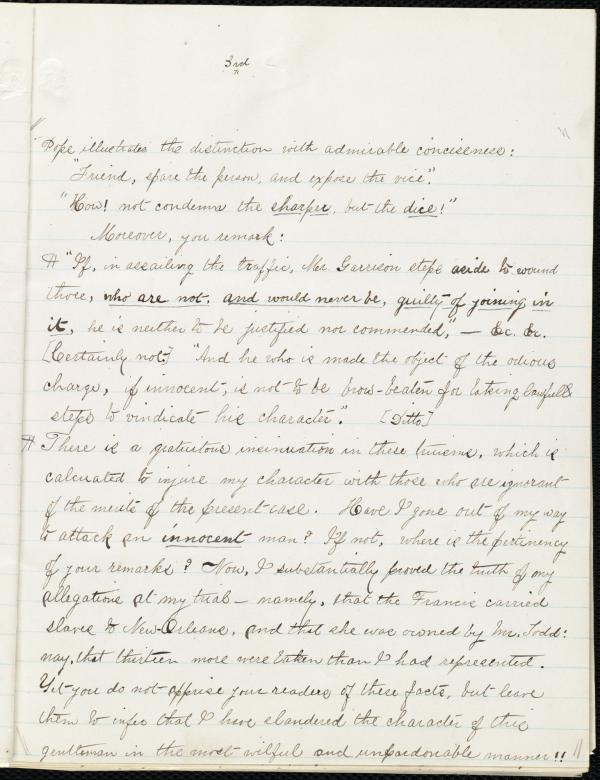 3rd
Pope illustrates the distinction with admirable conciseness:
"Friend, spare the person, and expose the vice".
"How! not condemn the sharper, but the dice!"
Moreover, you remark:
"If, in assailing the traffic, Mr. Garrison steps aside to wound
those, who are not, and would never be, guilty of joining in
it, he is neither to be justified nor commended," — &c. &c.
[Certainly not.] "And he who is made the object of the odious
charge, if innocent, is not to be brow-beaten for taking lawfull
steps to vindicate his character". [Ditto]
There is a gratuitous insinuation in these truisms, which is
calcuated to injure my character with those who are ignorant
of the merits of the present case. Have I gone out of my way
to attack an innocent man? If not, where is the pertinency
of your remarks? Now, I substantially proved the truth of my
allegations at my trial — namely, that the Francis carried
slaves to New-Orleans, and that she was owned by Mr. Todd:
nay, that thirteen more were taken than I had represented.
Yet you do not apprise your readers of these facts, but leave
them to infer that I have slandered the character of this
gentleman in the most wilful and unpardonable manner!!